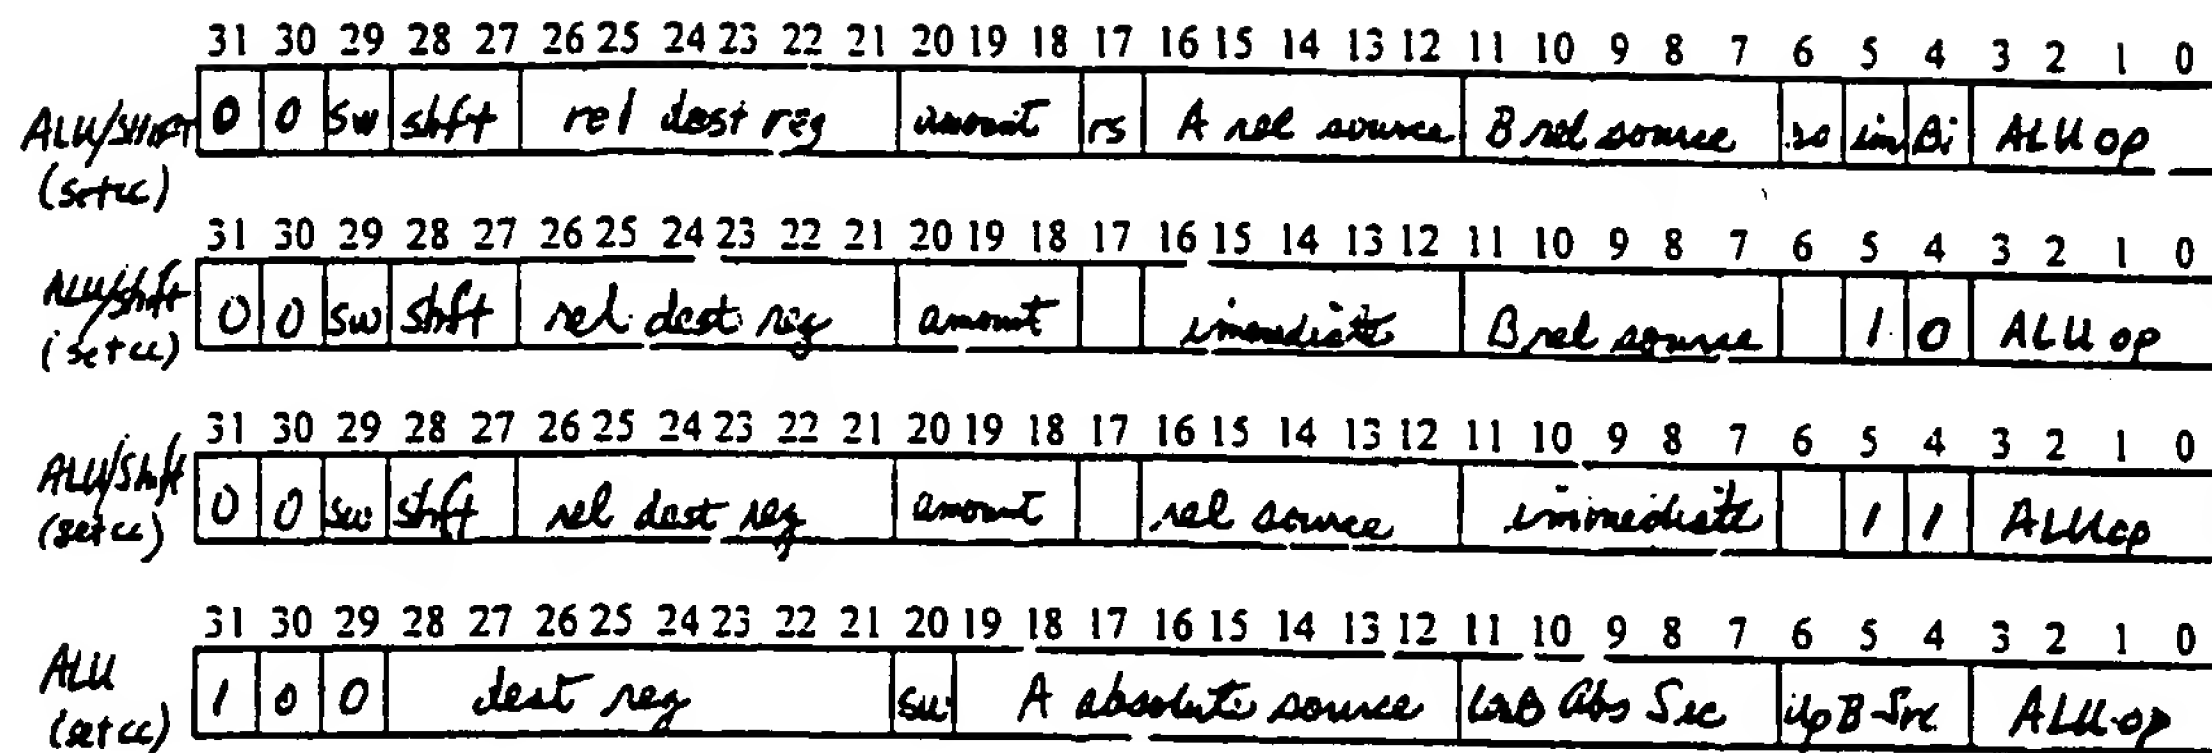 31 30 29 28 27 26 25 24 23 22 21 20 19 18 17 16 15 14 13 12 11 10 9 8 7 6 5 4 3 2 1 0
ALU/SHIFT 0 0 sw shft rel dest reg amount rs A rel source B rel source im Bi ALU op
(setcc)
31 30 29 28 27 26 25 24 23 22 21 20 19 18 17 16 15 14 13 12 11 10 9 8 7 6 5 4 3 2 1 0
ALU/Shft 0 0 sw shft rel dest reg amount immediate B rel source 1 0 ALU op
(setcc)
31 30 29 28 27 26 25 24 23 22 21 20 19 18 17 16 15 14 13 12 11 10 9 8 7 6 5 4 3 2 1 0
ALU/Shft 0 0 sw shft rel dest reg amount rel source immediate 1 1 ALU op
(setcc)
31 30 29 28 27 26 25 24 23 22 21 20 19 18 17 16 15 14 13 12 11 10 9 8 7 6 5 4 3 2 1 0
ALU 1 0 0 dest reg sw A absolute source Abs Src Up B Src ALU op
(setcc)